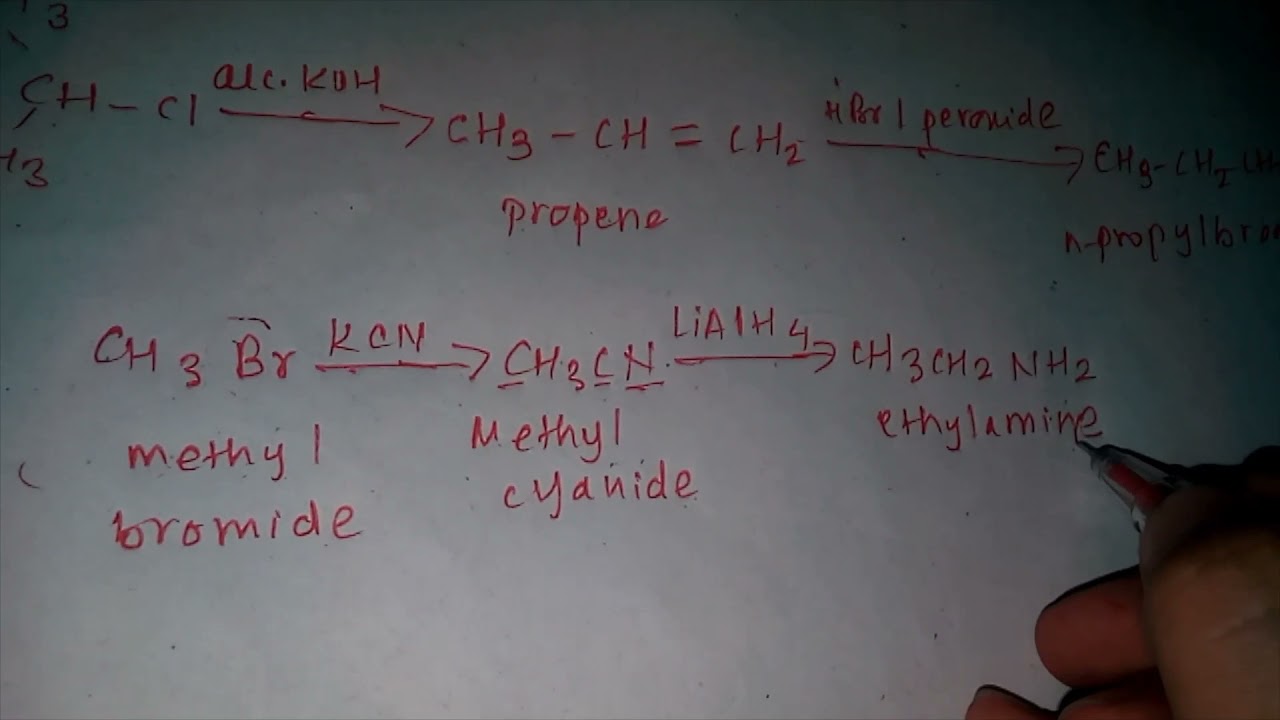 3
CH - Cl alc. KOH CH3 - CH = CH2 HBr | peroxide CH3 - CH2 CH
H3
propene
n-propylbro
CH3 Br KCN CH3CN LiAlH4 CH3CH2 NH2
methyl Methyl ethylamine
bromide cyanide